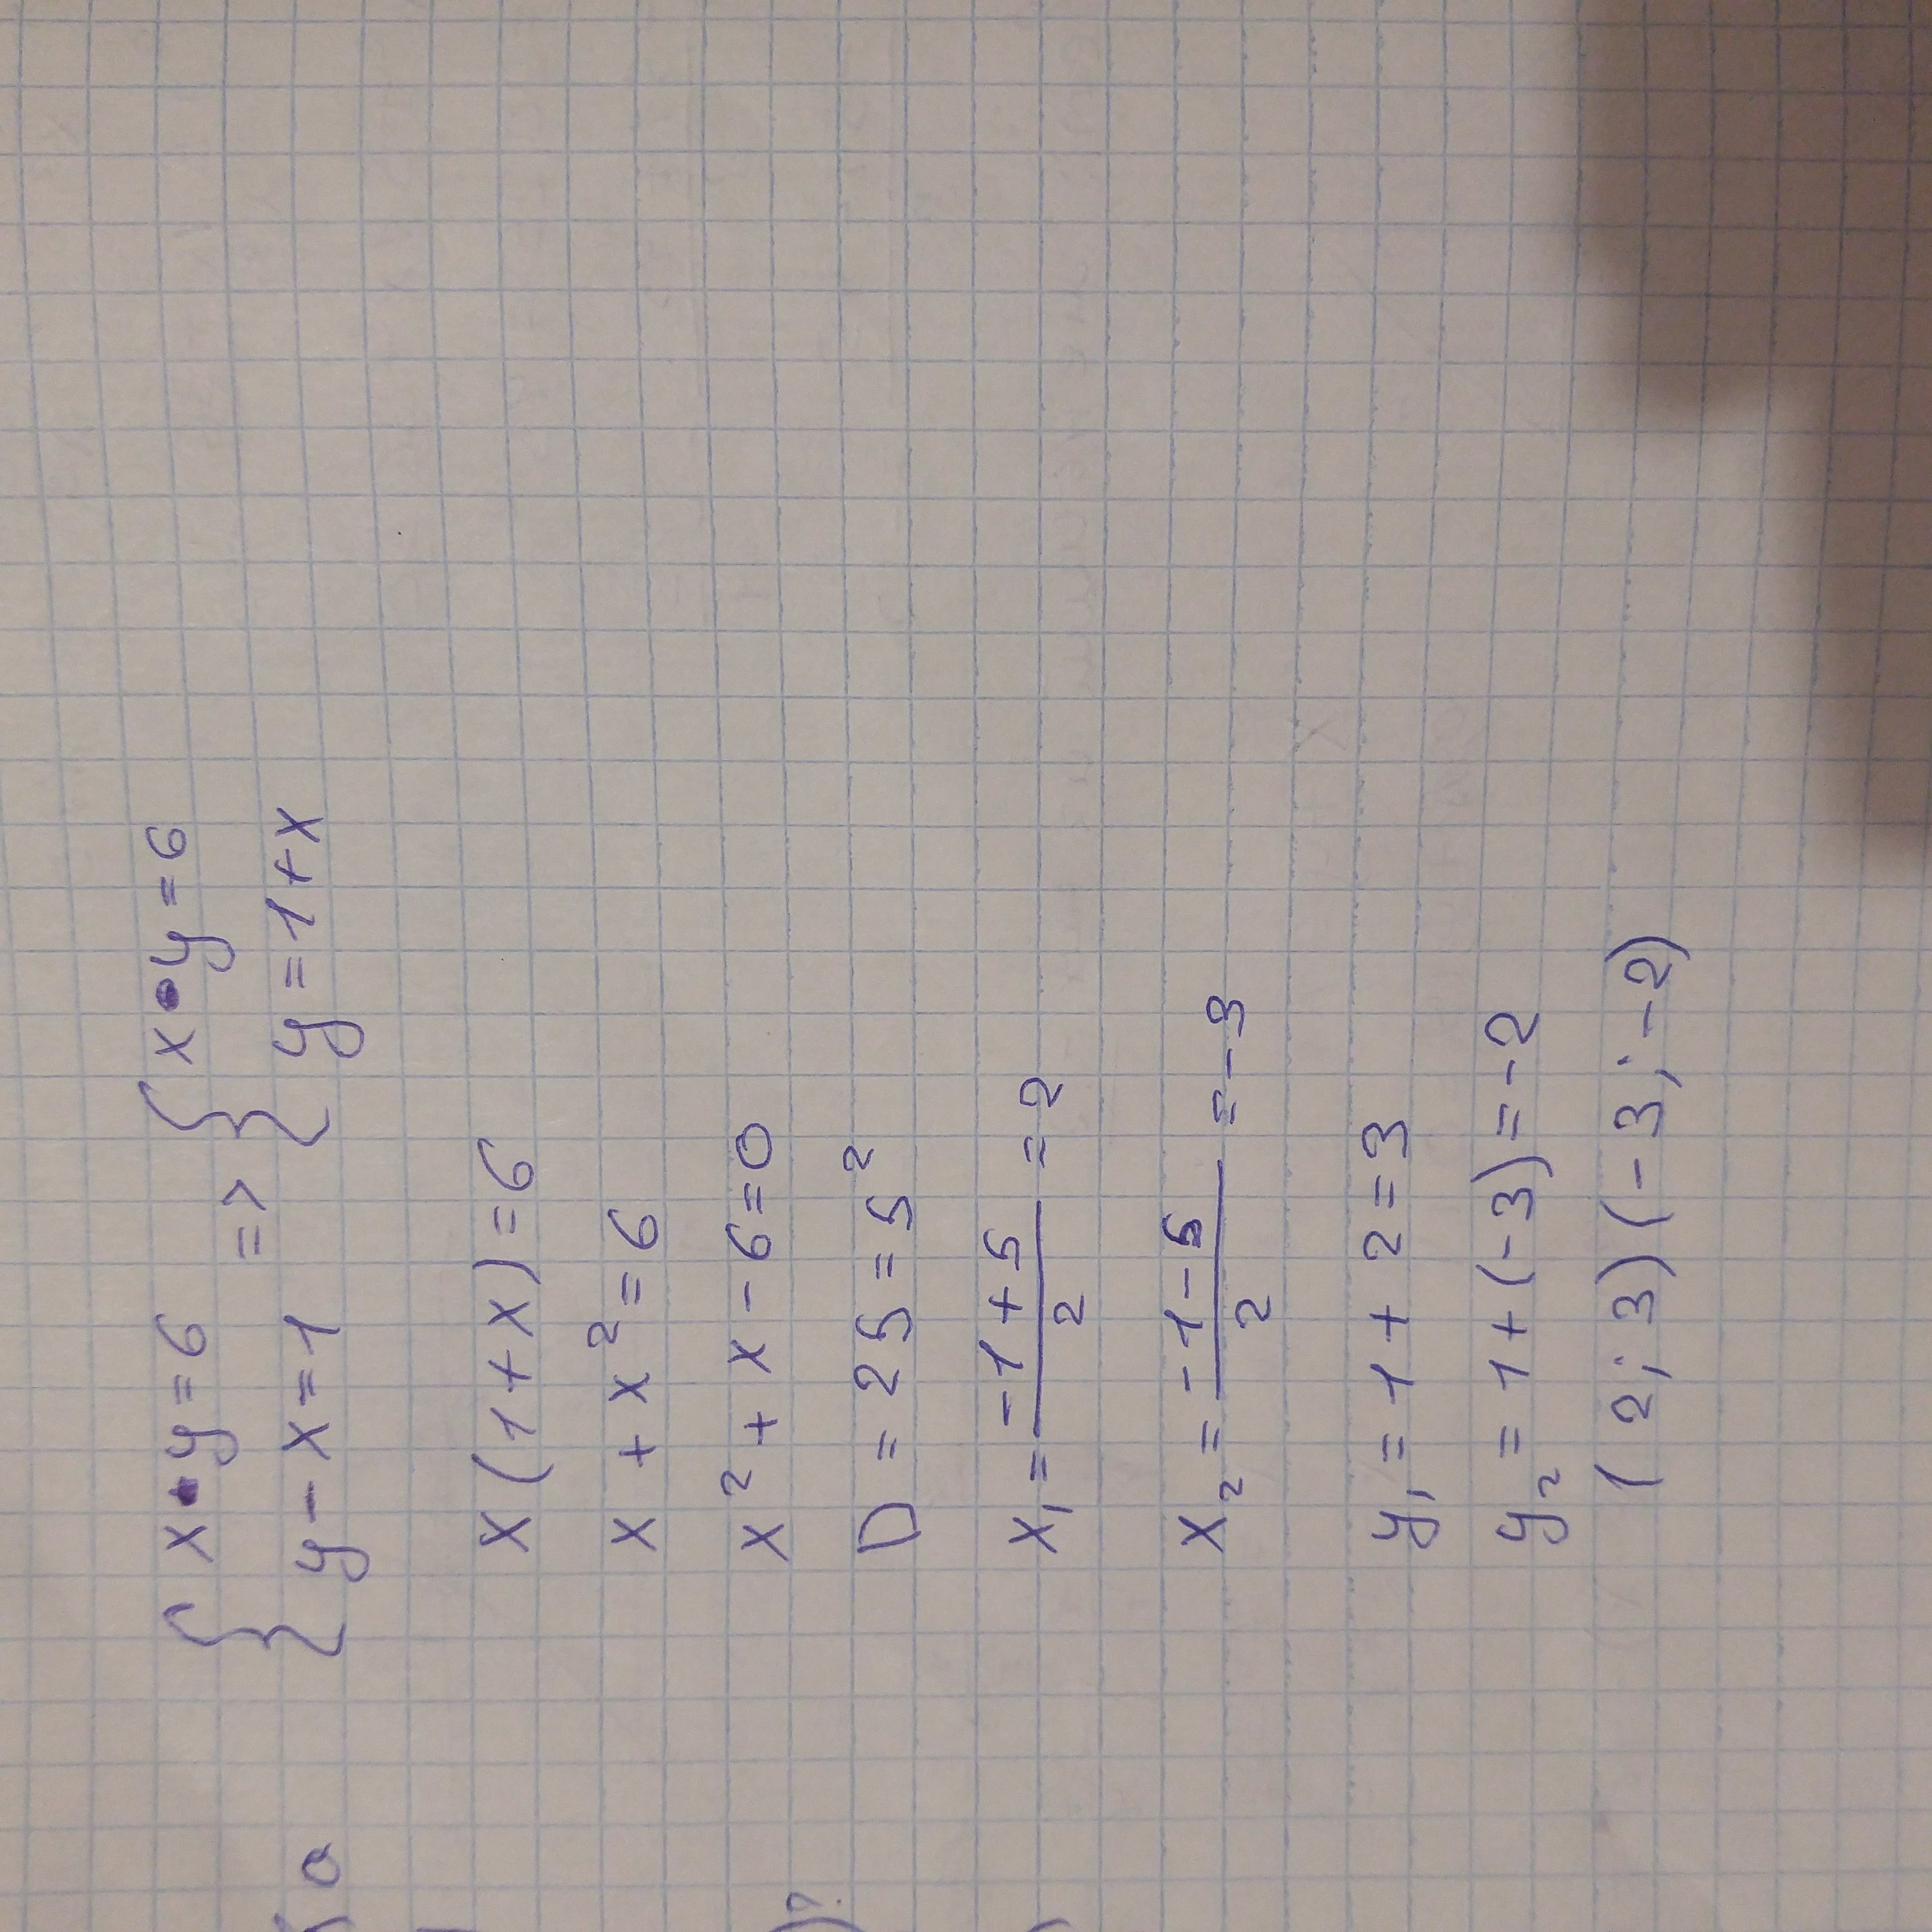 { x•y=6 => { x•y=6
{ y-x=1 { y=1+x
x(1+x)=6
x + x²=6
x² + x - 6=0
D = 25 = 5²
x₁ = (-1+5)/2 = 2
x₂ = (-1-5)/2 = -3
y₁ = 1 + 2 = 3
y₂ = 1+(-3)=-2
(2; 3) (-3; -2)